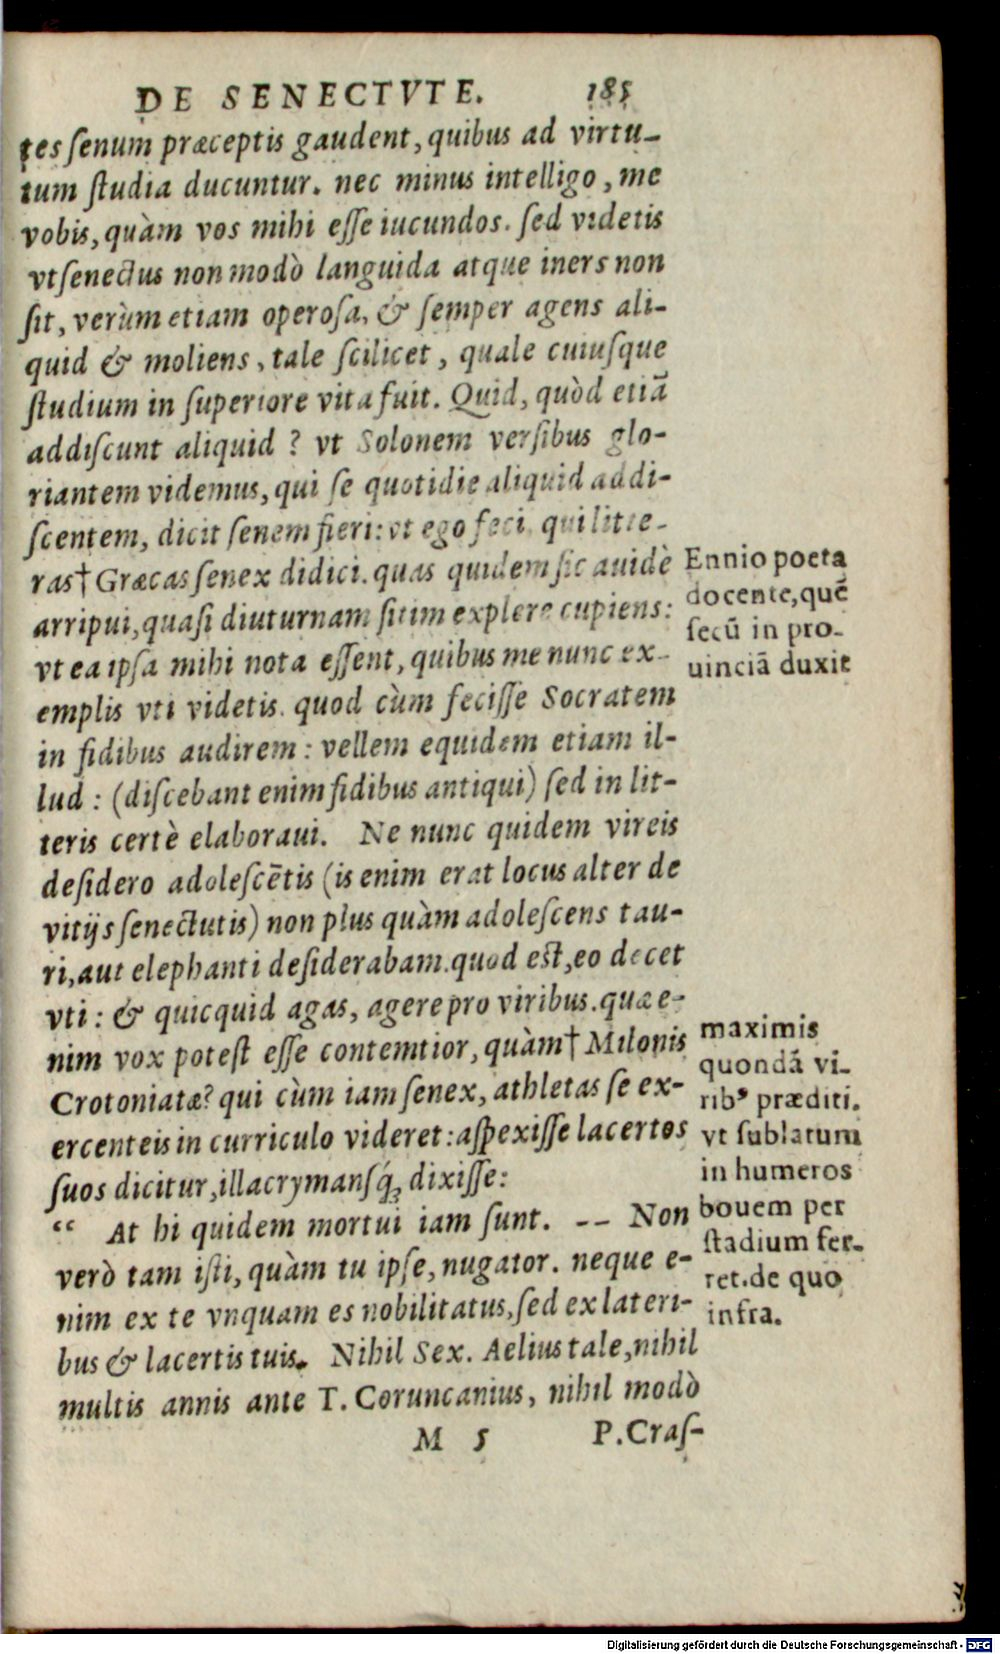 DE SENECTVTE. 185
tes ſenum præceptis gaudent, quibus ad virtu-
tum ſtudia ducuntur. nec minus intelligo, me
vobis, quàm vos mihi eſſe iucundos. ſed videtis
vt ſenectus non modò languida atque iners non
ſit, verùm etiam operoſa, & ſemper agens ali-
quid & moliens, tale ſcilicet, quale cuiuſque
ſtudium in ſuperiore vita fuit. Quid, quòd etiã
addiſcunt aliquid? vt Solonem verſibus glo-
riantem videmus, qui ſe quotidie aliquid addi-
ſcentem, dicit ſenem fieri: vt ego feci, qui litte-
ras† Græcas ſenex didici. quas quidem ſic auidè
arripui, quaſi diuturnam ſitim explere cupiens:
vt ea ipſa mihi nota eſſent, quibus me nunc ex-
emplis vti videtis. quod cùm feciſſe Socratem
in fidibus audirem: vellem equidem etiam il-
lud: (diſcebant enim fidibus antiqui) ſed in lit-
teris certè elaboraui. Ne nunc quidem vireis
deſidero adoleſcẽtis (is enim erat locus alter de
vitijs ſenectutis) non plus quàm adoleſcens tau-
ri, aut elephanti deſiderabam. quod eſt, eo decet
vti: & quicquid agas, agere pro viribus. quæ e-
nim vox poteſt eſſe contemtior, quàm† Milonis
Crotoniatæ? qui cùm iam ſenex, athletas ſe ex-
ercenteis in curriculo videret: aſpexiſſe lacertos
ſuos dicitur, illacrymanſq́; dixiſſe:
“ At hi quidem mortui iam ſunt. -- Non
verò tam iſti, quàm tu ipſe, nugator. neque e-
nim ex te vnquam es nobilitatus, ſed ex lateri-
bus & lacertis tuis. Nihil Sex. Aelius tale, nihil
multis annis ante T. Coruncanius, nihil modò
M 5 P. Craſ-
Ennio poeta
docente, quẽ
ſecũ in pro-
uinciã duxit
maximis
quondã vi-
ribꝰ præditi.
vt ſublatum
in humeros
bouem per
ſtadium fer-
ret. de quo
infra.
Digitalisierung gefördert durch die Deutsche Forschungsgemeinschaft - DFG